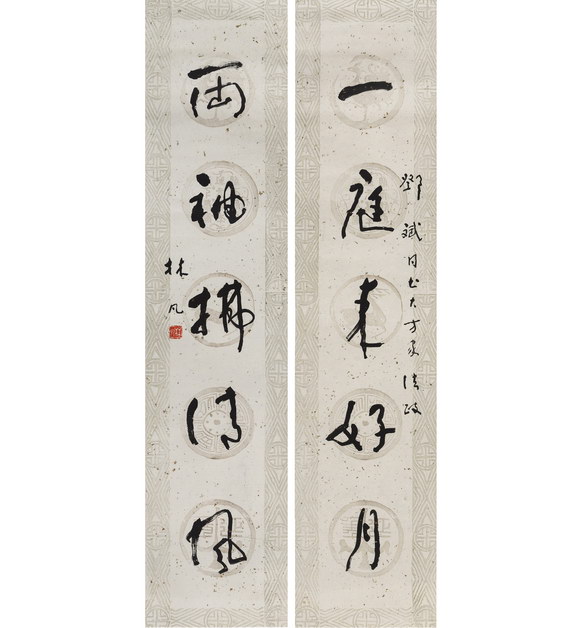 一庭来好月
鄧斌同志大方家政
两袖拂清风
林凡